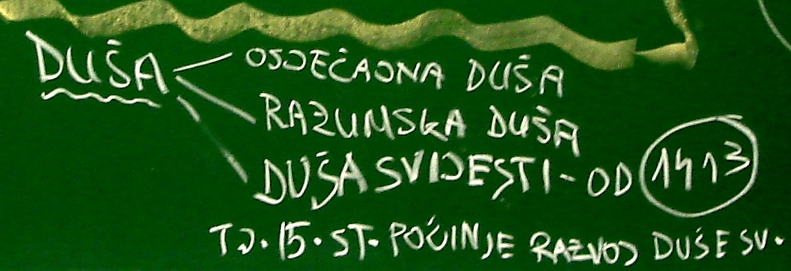 DUŠA
OSJEĆAJNA DUŠA
RAZUMSKA DUŠA
DUŠA SVIJESTI - OD 1413
TJ. 15. ST. POČINJE RAZVOJ DUŠE SV.